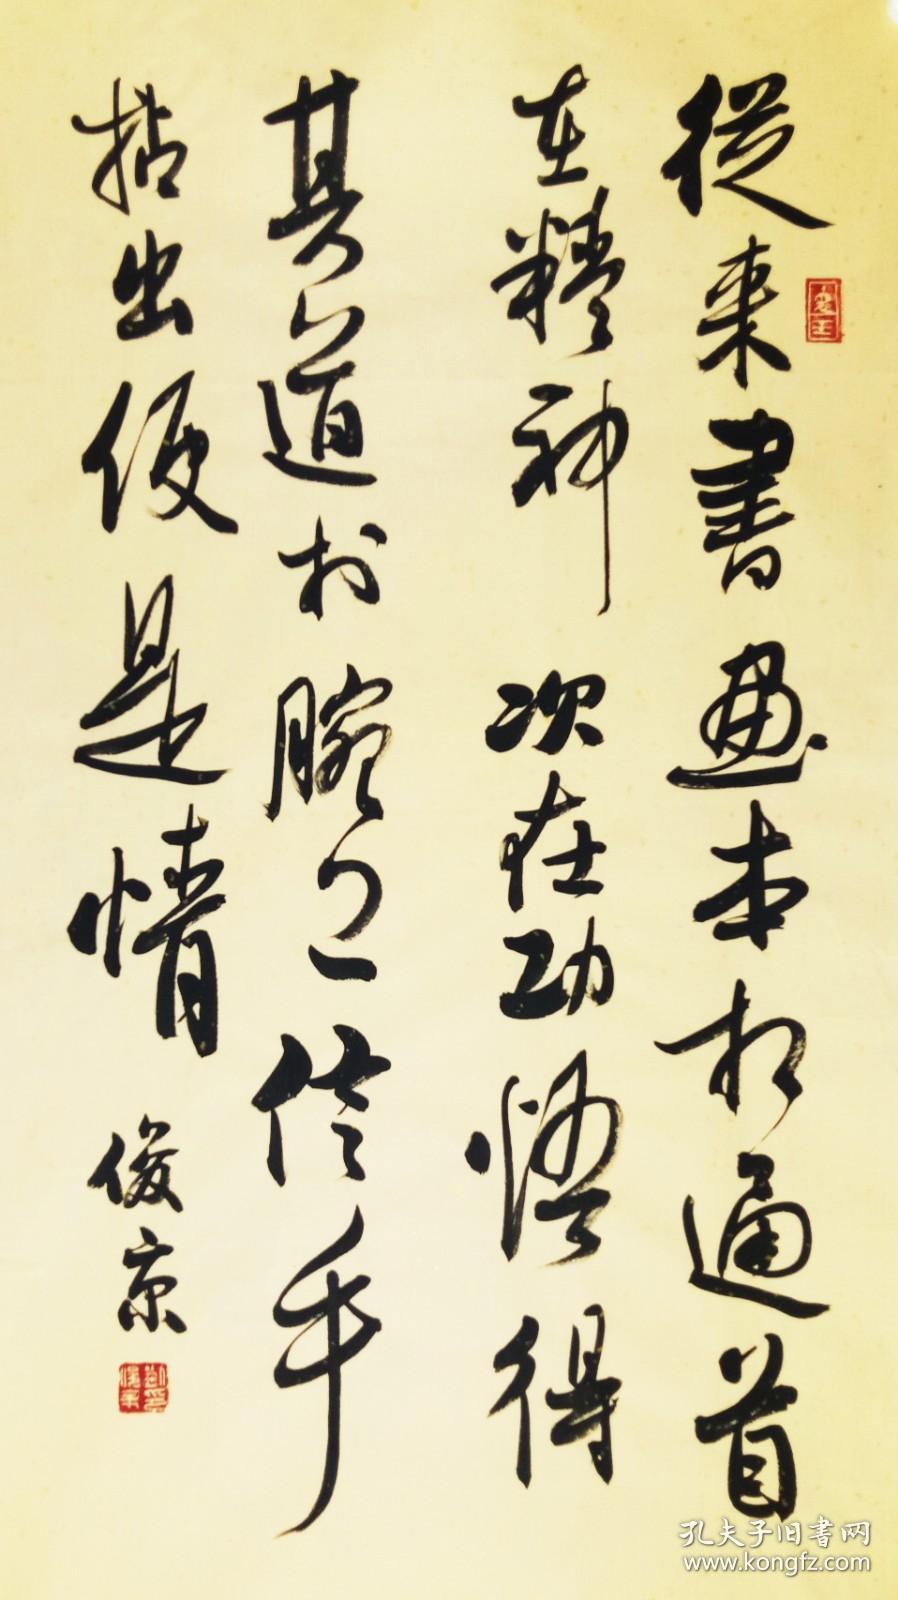 從來書畫本相通首
在精神次在功悟得
其道於腕上信手
拈出便是情
俊京
孔夫子旧书网
www.kongfz.com